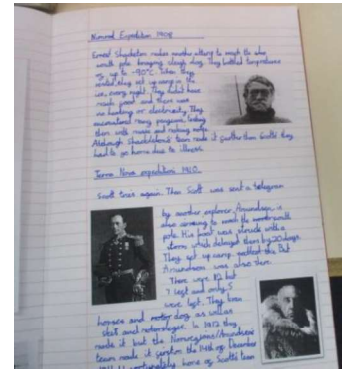 Nimrod Expedition 1908
Ernest Shackleton makes another attempt to reach the
south pole. bringing sleigh dogs, they battled temperatures
of up to -90°C. When they
ended, they set up camp in the
ice, every night. They didn't have
much food and there was
no heating or electricity. They
encountered many penguins,
them with music and making
Although Shackleton's team made it further than Scott's they
had to go home due to illness.
Terra Nova expedition 1910
Scott tries again. Then Scott was sent a telegram
by another explorer, Amundsen is
also coming to reach the
pole. His boat was struck with a
storm which delayed them by 20 days.
They set up camp, But
Amundsen was also there.
There were 12 but
7 left and only 5
were left. They have
horses and motor dog as well as
In 1912 they
made it but the Norwegians/Amundsen's
team made it first on the 14th of December
1911. Unfortunately, none of Scott's team